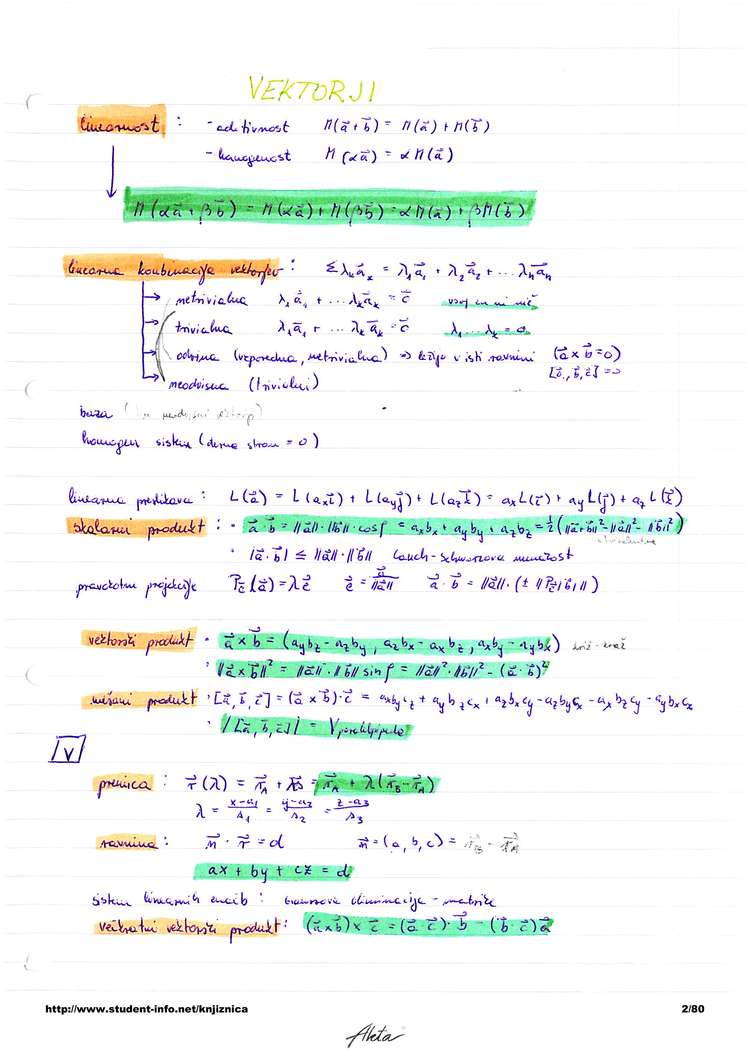 VEKTORJI
linearnost : - aditivnost M(a⃗ + b⃗) = M(a⃗) + M(b⃗)
- homogenost M(αa⃗) = αM(a⃗)
M(αa⃗ + βb⃗) = M(αa⃗) + M(βb⃗) = αM(a⃗) + βM(b⃗)
linearna kombinacija vektorjev : Σλₖa⃗ₖ = λ₁a⃗₁ + λ₂a⃗₂ + ... λₙa⃗ₙ
netrivialna λ₁a⃗₁ + ... λₖa⃗ₖ = c⃗ vsaj en ni nič
trivialna λ₁a⃗₁ + ... λₖa⃗ₖ = c⃗ λ₁...λₖ = 0
odvisna (vzporedna, netrivialna) => ležijo v isti ravnini (a⃗ x b⃗ = 0)
[a⃗, b⃗, c⃗] = 0
neodvisna (trivialni)
baza (neodvisni vektorji)
homogen sistem (desna stran = 0)
linearna preslikava : L(a⃗) = L(aₓi⃗) + L(a_y j⃗) + L(a_z k⃗) = aₓL(i⃗) + a_y L(j⃗) + a_z L(k⃗)
skalarni produkt : • a⃗·b⃗ = ||a⃗||·||b⃗|| cosφ = aₓbₓ + a_y b_y + a_z b_z = ½(||a⃗+b⃗||² - ||a⃗||² - ||b⃗||²)
• |a⃗·b⃗| ≤ ||a⃗||·||b⃗|| Cauch-Schwarzova neenačost
pravokotna projekcija P_c⃗(a⃗) = λe⃗ e⃗ = a⃗/||a⃗|| a⃗·b⃗ = ||a⃗||·(± ||P_c⃗(b⃗)||)
vektorski produkt • a⃗ x b⃗ = (a_y b_z - a_z b_y, a_z bₓ - aₓ b_z, aₓ b_y - a_y bₓ) križ-kraž
• ||a⃗ x b⃗||² = ||a⃗||·||b⃗|| sinφ = ||a⃗||²·||b⃗||² - (a⃗·b⃗)²
mešani produkt • [a⃗, b⃗, c⃗] = (a⃗ x b⃗)·c⃗ = aₓb_y c_z + a_y b_z cₓ + a_z bₓ c_y - a_z b_y cₓ - aₓ b_z c_y - a_y bₓ c_z
• |[a⃗, b⃗, c⃗]| = V paralelepipeda
V
premica : r⃗(λ) = r⃗_A + AB = r⃗_A + λ(r⃗_B - r⃗_A)
λ = (x-a₁)/s₁ = (y-a₂)/s₂ = (z-a₃)/s₃
ravnina : n⃗·r⃗ = d n⃗ = (a, b, c) = r⃗_B - r⃗_A
ax + by + cz = d
sistem linearnih enačb : Gaussova eliminacija - matrike
večkratni vektorski produkt : (a⃗ x b⃗) x c⃗ = (a⃗·c⃗)·b⃗ - (b⃗·c⃗)a⃗
http://www.student-info.net/knjiznica 2/80